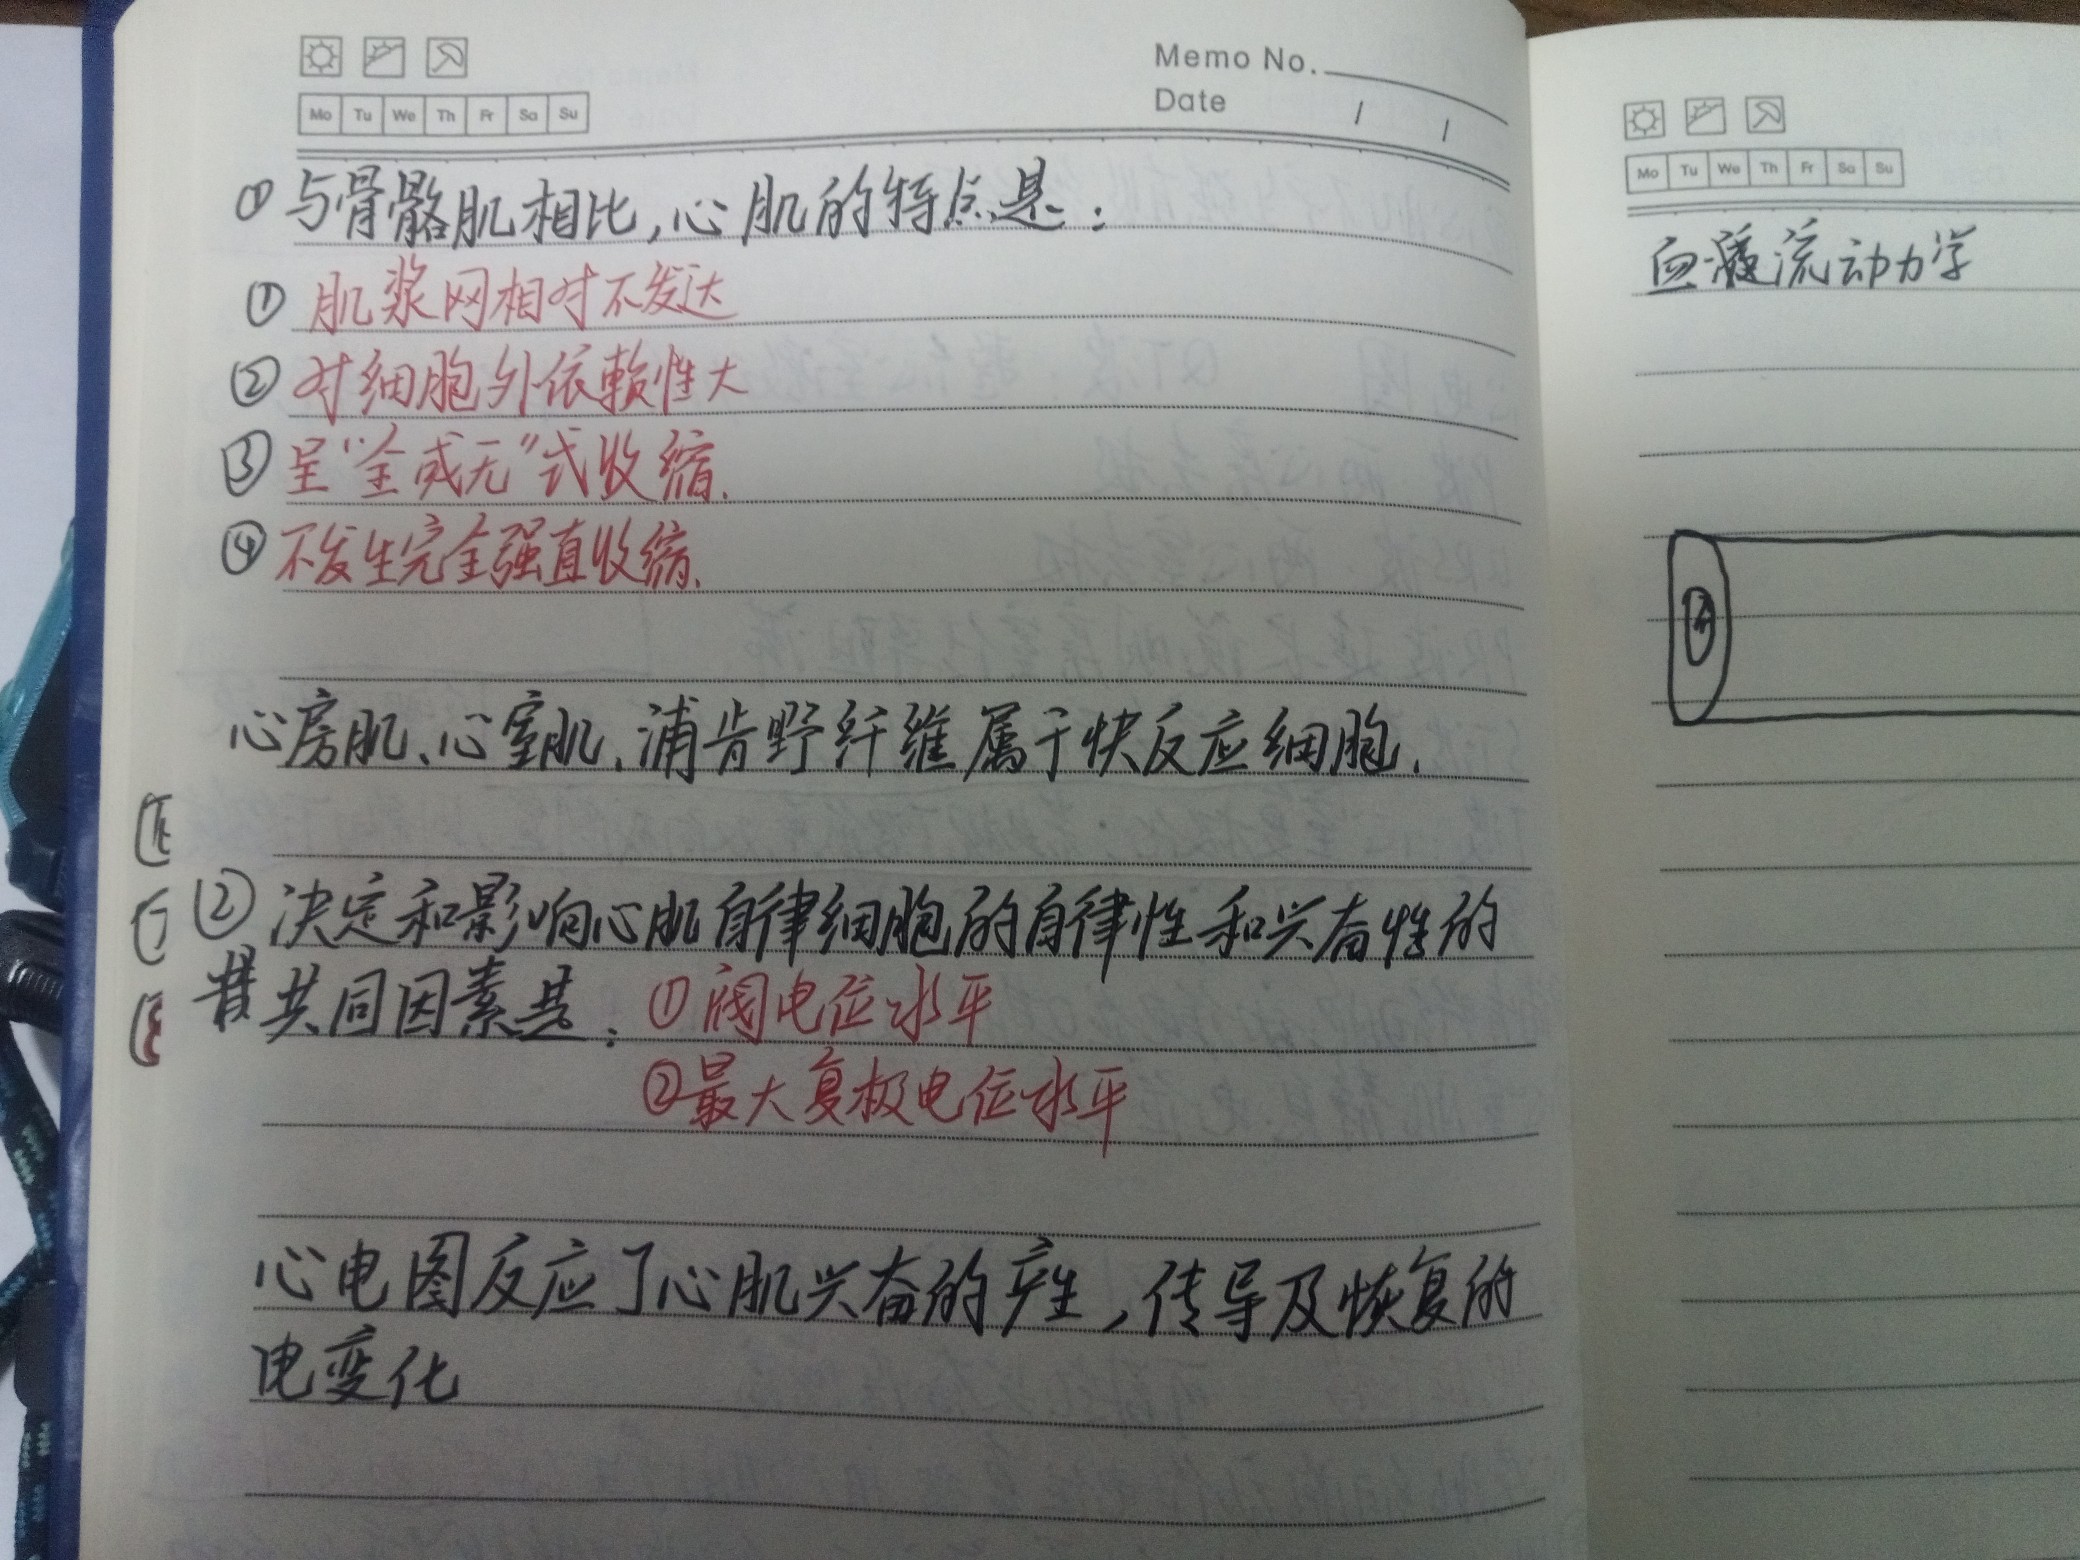 Memo No.
Date / /
Mo Tu We Th Fr Sa Su
① 与骨骼肌相比,心肌的特点是:
① 肌浆网相对不发达
② 对细胞外依赖性大
③ 呈“全或无”式收缩.
④ 不发生完全强直收缩.
心房肌、心室肌、浦肯野纤维属于快反应细胞.
② 决定和影响心肌自律细胞的自律性和兴奋性的
共同因素是: ①阈电位水平
②最大复极电位水平
心电图反应了心肌兴奋的产生,传导及恢复的
电变化
Mo Tu We Th Fr Sa Su
血液流动力学